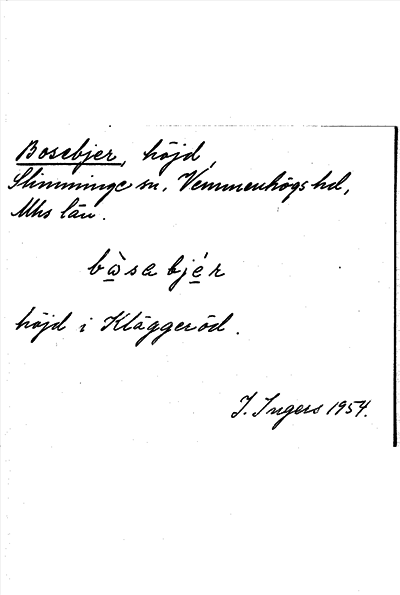 Bosebjer, höjd,
Slimminge sn, Vemmenhögs hd,
Mhs län.
bɷ̀sa bjér
höjd i Kläggeröd.
I. Ingers 1954.